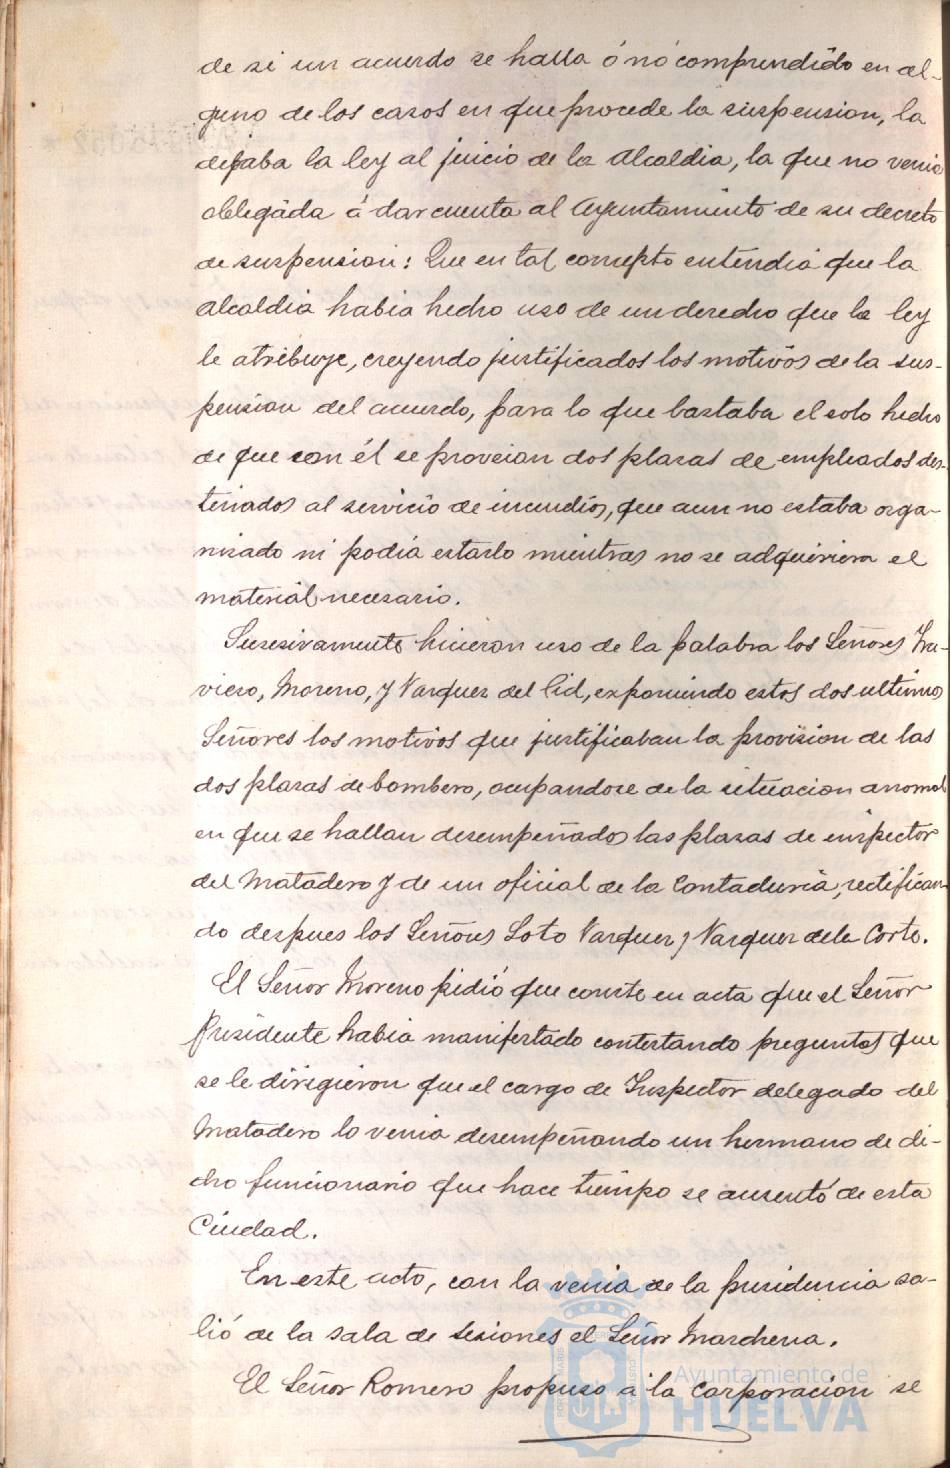 de si un acuerdo se halla ó nó comprendido en al-
guno de los casos en que procede la suspension, la
dejaba la ley al juicio de la Alcaldia, la que no venia
obligada á dar cuenta al Ayuntamiento de su decreto
de suspension: Que en tal concepto entendia que la
Alcaldia habia hecho uso de un derecho que la ley
le atribuye, creyendo justificados los motivos de la sus-
pension del acuerdo, para lo que bastaba el solo hecho
de que con él se proveian dos plazas de empleados des-
tinados al servicio de incendios, que aun no estaba orga-
nizado ni podia estarlo mientras no se adquiriera el
material necesario.
Sucesivamente hicieron uso de la palabra los Señores Tra-
vieso, Moreno, y Vazquez del Cid, exponiendo estos dos ultimos
Señores los motivos que justificaban la provision de las
dos plazas de bombero, ocupandose de la situacion anomal
en que se hallan desempeñados las plazas de inspector
del Matadero y de un oficial de la Contaduria, rectifican-
do despues los Señores Soto Vazquez y Vazquez de la Corte.
El Señor Moreno pidió que conste en acta que el Señor
Presidente habia manifestado contestando preguntas que
se le dirigieron que el cargo de Inspector delegado del
Matadero lo venia desempeñando un hermano de di-
cho funcionario que hace tiempo se ausentó de esta
Ciudad.
En este acto, con la venia de la presidencia sa-
lió de la sala de sesiones el Señor Marchena.
El Señor Romero propuso á la Corporacion se
Ayuntamiento de
HUELVA